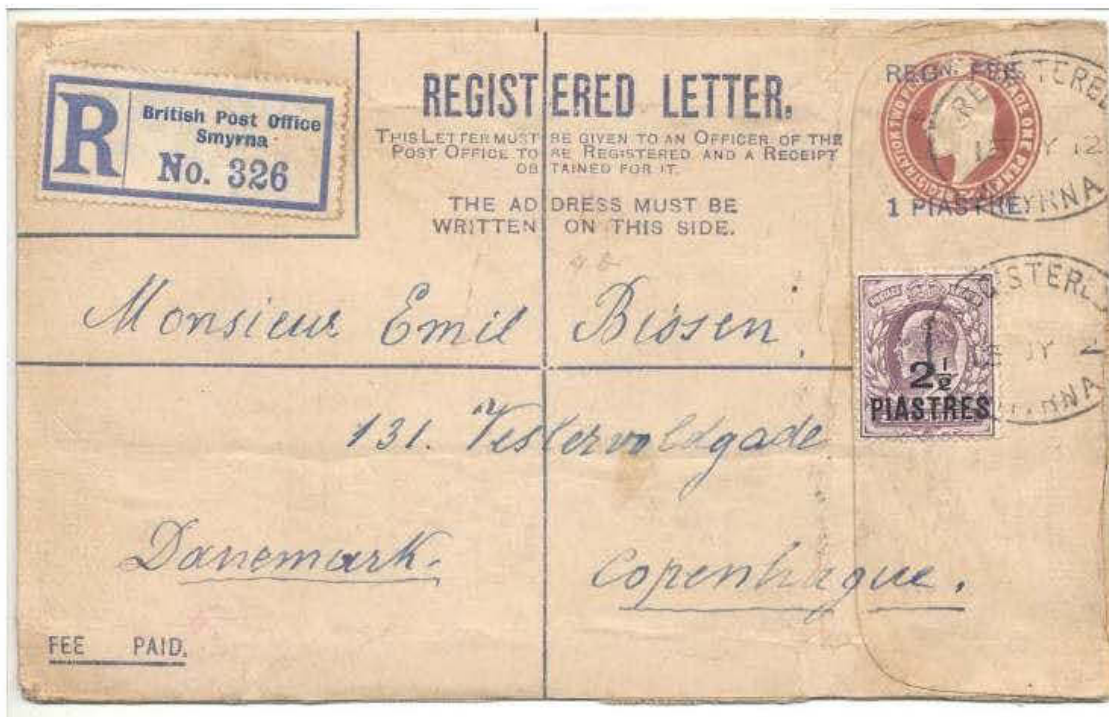 R
British Post Office
Smyrna
No. 326
REGISTERED LETTER.
THIS LETTER MUST BE GIVEN TO AN OFFICER OF THE
POST OFFICE TO BE REGISTERED AND A RECEIPT
OBTAINED FOR IT.
THE ADDRESS MUST BE
WRITTEN ON THIS SIDE.
REGN. FEE
REGISTRATION TWO PENCE POSTAGE ONE PENNY
1 PIASTRE
REGISTERED
JY 12
SMYRNA
2½
PIASTRES
REGISTERED
JY
Monsieur Emil Bissen,
131. Vestervoldgade
Danemark.
Copenhague.
FEE PAID.